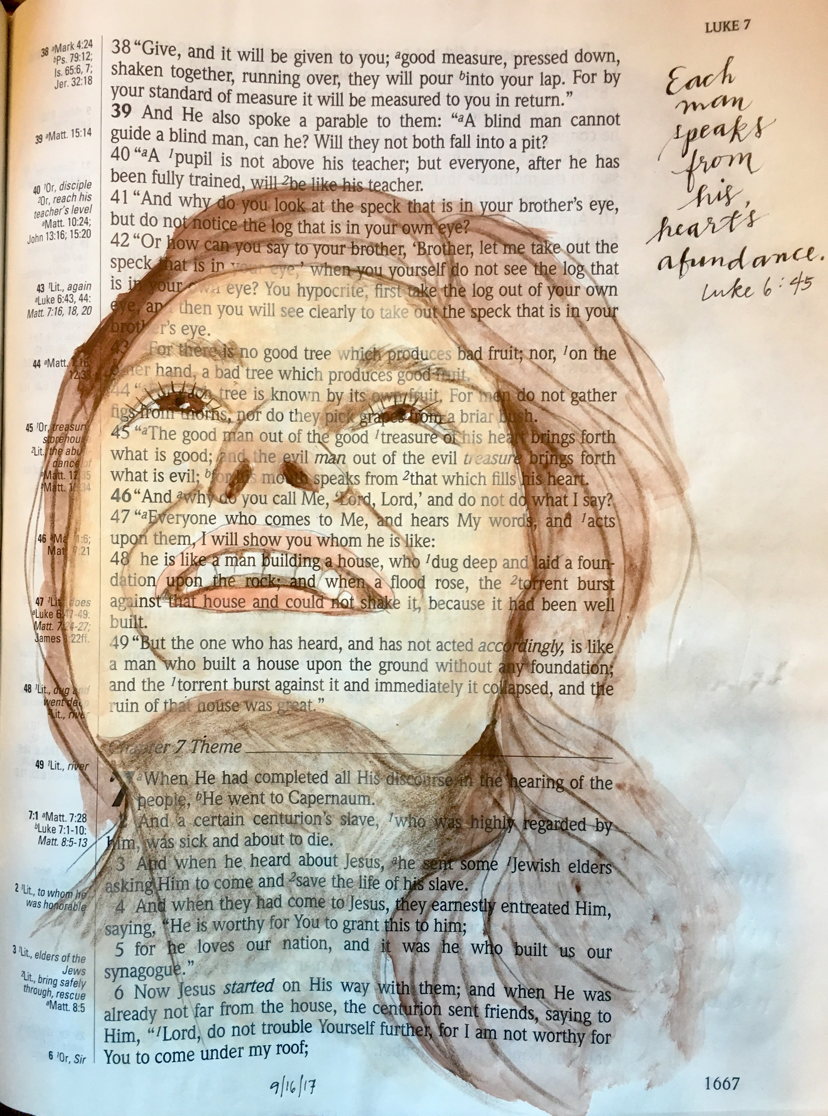 LUKE 7
38 ªMark 4:24
ᵇPs. 79:12;
Is. 65:6, 7;
Jer. 32:18
39 ªMatt. 15:14
40 ¹Or, disciple
²Or, reach his
teacher's level
ªMatt. 10:24;
John 13:16; 15:20
43 ¹Lit., again
44 ªLuke 6:43, 44;
Matt. 7:16, 18, 20
44 ªMatt.
45 ¹Or, treasure
storehouse
²Lit., the abundance of
ªMatt. 12:35
ᵇMatt. 12:34
46
47 ¹Lit., does
ªLuke 6:47-49;
Matt. 7:24-27;
James 1:22ff.
48 ¹Lit., dug and
went deep
²Lit., river
49 ¹Lit., river
7:1 ªMatt. 7:28
ᵇLuke 7:1-10:
Matt. 8:5-13
2 ¹Lit., to whom he
was honorable
3 ¹Lit., elders of the
Jews
²Lit., bring safely
through, rescue
ªMatt. 8:5
6 ¹Or, Sir
38 “Give, and it will be given to you; ªgood measure, pressed down,
shaken together, running over, they will pour ᵇinto your lap. For by
your standard of measure it will be measured to you in return.”
39 And He also spoke a parable to them: “ªA blind man cannot
guide a blind man, can he? Will they not both fall into a pit?
40 “ªA ¹pupil is not above his teacher; but everyone, after he has
been fully trained, will ²be like his teacher.
41 “And why do you look at the speck that is in your brother's eye,
but do not notice the log that is in your own eye?
42 “Or how can you say to your brother, ‘Brother, let me take out the
speck that is in your eye,’ when you yourself do not see the log that
is in your own eye? You hypocrite, first take the log out of your own
eye, and then you will see clearly to take out the speck that is in your
brother's eye.
43 “For there is no good tree which produces bad fruit; nor, ¹on the
other hand, a bad tree which produces good fruit.
44 “ tree is known by its own fruit. For men do not gather
figs from thorns, nor do they pick grapes from a briar bush.
45 “ªThe good man out of the good ¹treasure of his heart brings forth
what is good; and the evil man out of the evil treasure brings forth
what is evil; ᵇfor his mouth speaks from ²that which fills his heart.
46 “And ªwhy do you call Me, ‘Lord, Lord,’ and do not do what I say?
47 “ªEveryone who comes to Me, and hears My words, and ¹acts
upon them, I will show you whom he is like:
48 he is like a man building a house, who ¹dug deep and laid a foun-
dation upon the rock; and when a flood rose, the ²torrent burst
against that house and could not shake it, because it had been well
built.
49 “But the one who has heard, and has not acted accordingly, is like
a man who built a house upon the ground without any foundation;
and the ¹torrent burst against it and immediately it collapsed, and the
ruin of that house was great.”
Chapter 7 Theme
7 ªWhen He had completed all His discourse in the hearing of the
people, ᵇHe went to Capernaum.
And a certain centurion's slave, ¹who was highly regarded by
him, was sick and about to die.
3 And when he heard about Jesus, ªhe sent some ¹Jewish elders
asking Him to come and ²save the life of his slave.
4 And when they had come to Jesus, they earnestly entreated Him,
saying, “He is worthy for You to grant this to him;
5 for he loves our nation, and it was he who built us our
synagogue.”
6 Now Jesus started on His way with them; and when He was
already not far from the house, the centurion sent friends, saying to
Him, “¹Lord, do not trouble Yourself further, for I am not worthy for
You to come under my roof;
Each
man
speaks
from
his
heart's
abundance.
Luke 6:45
9/16/17
1667